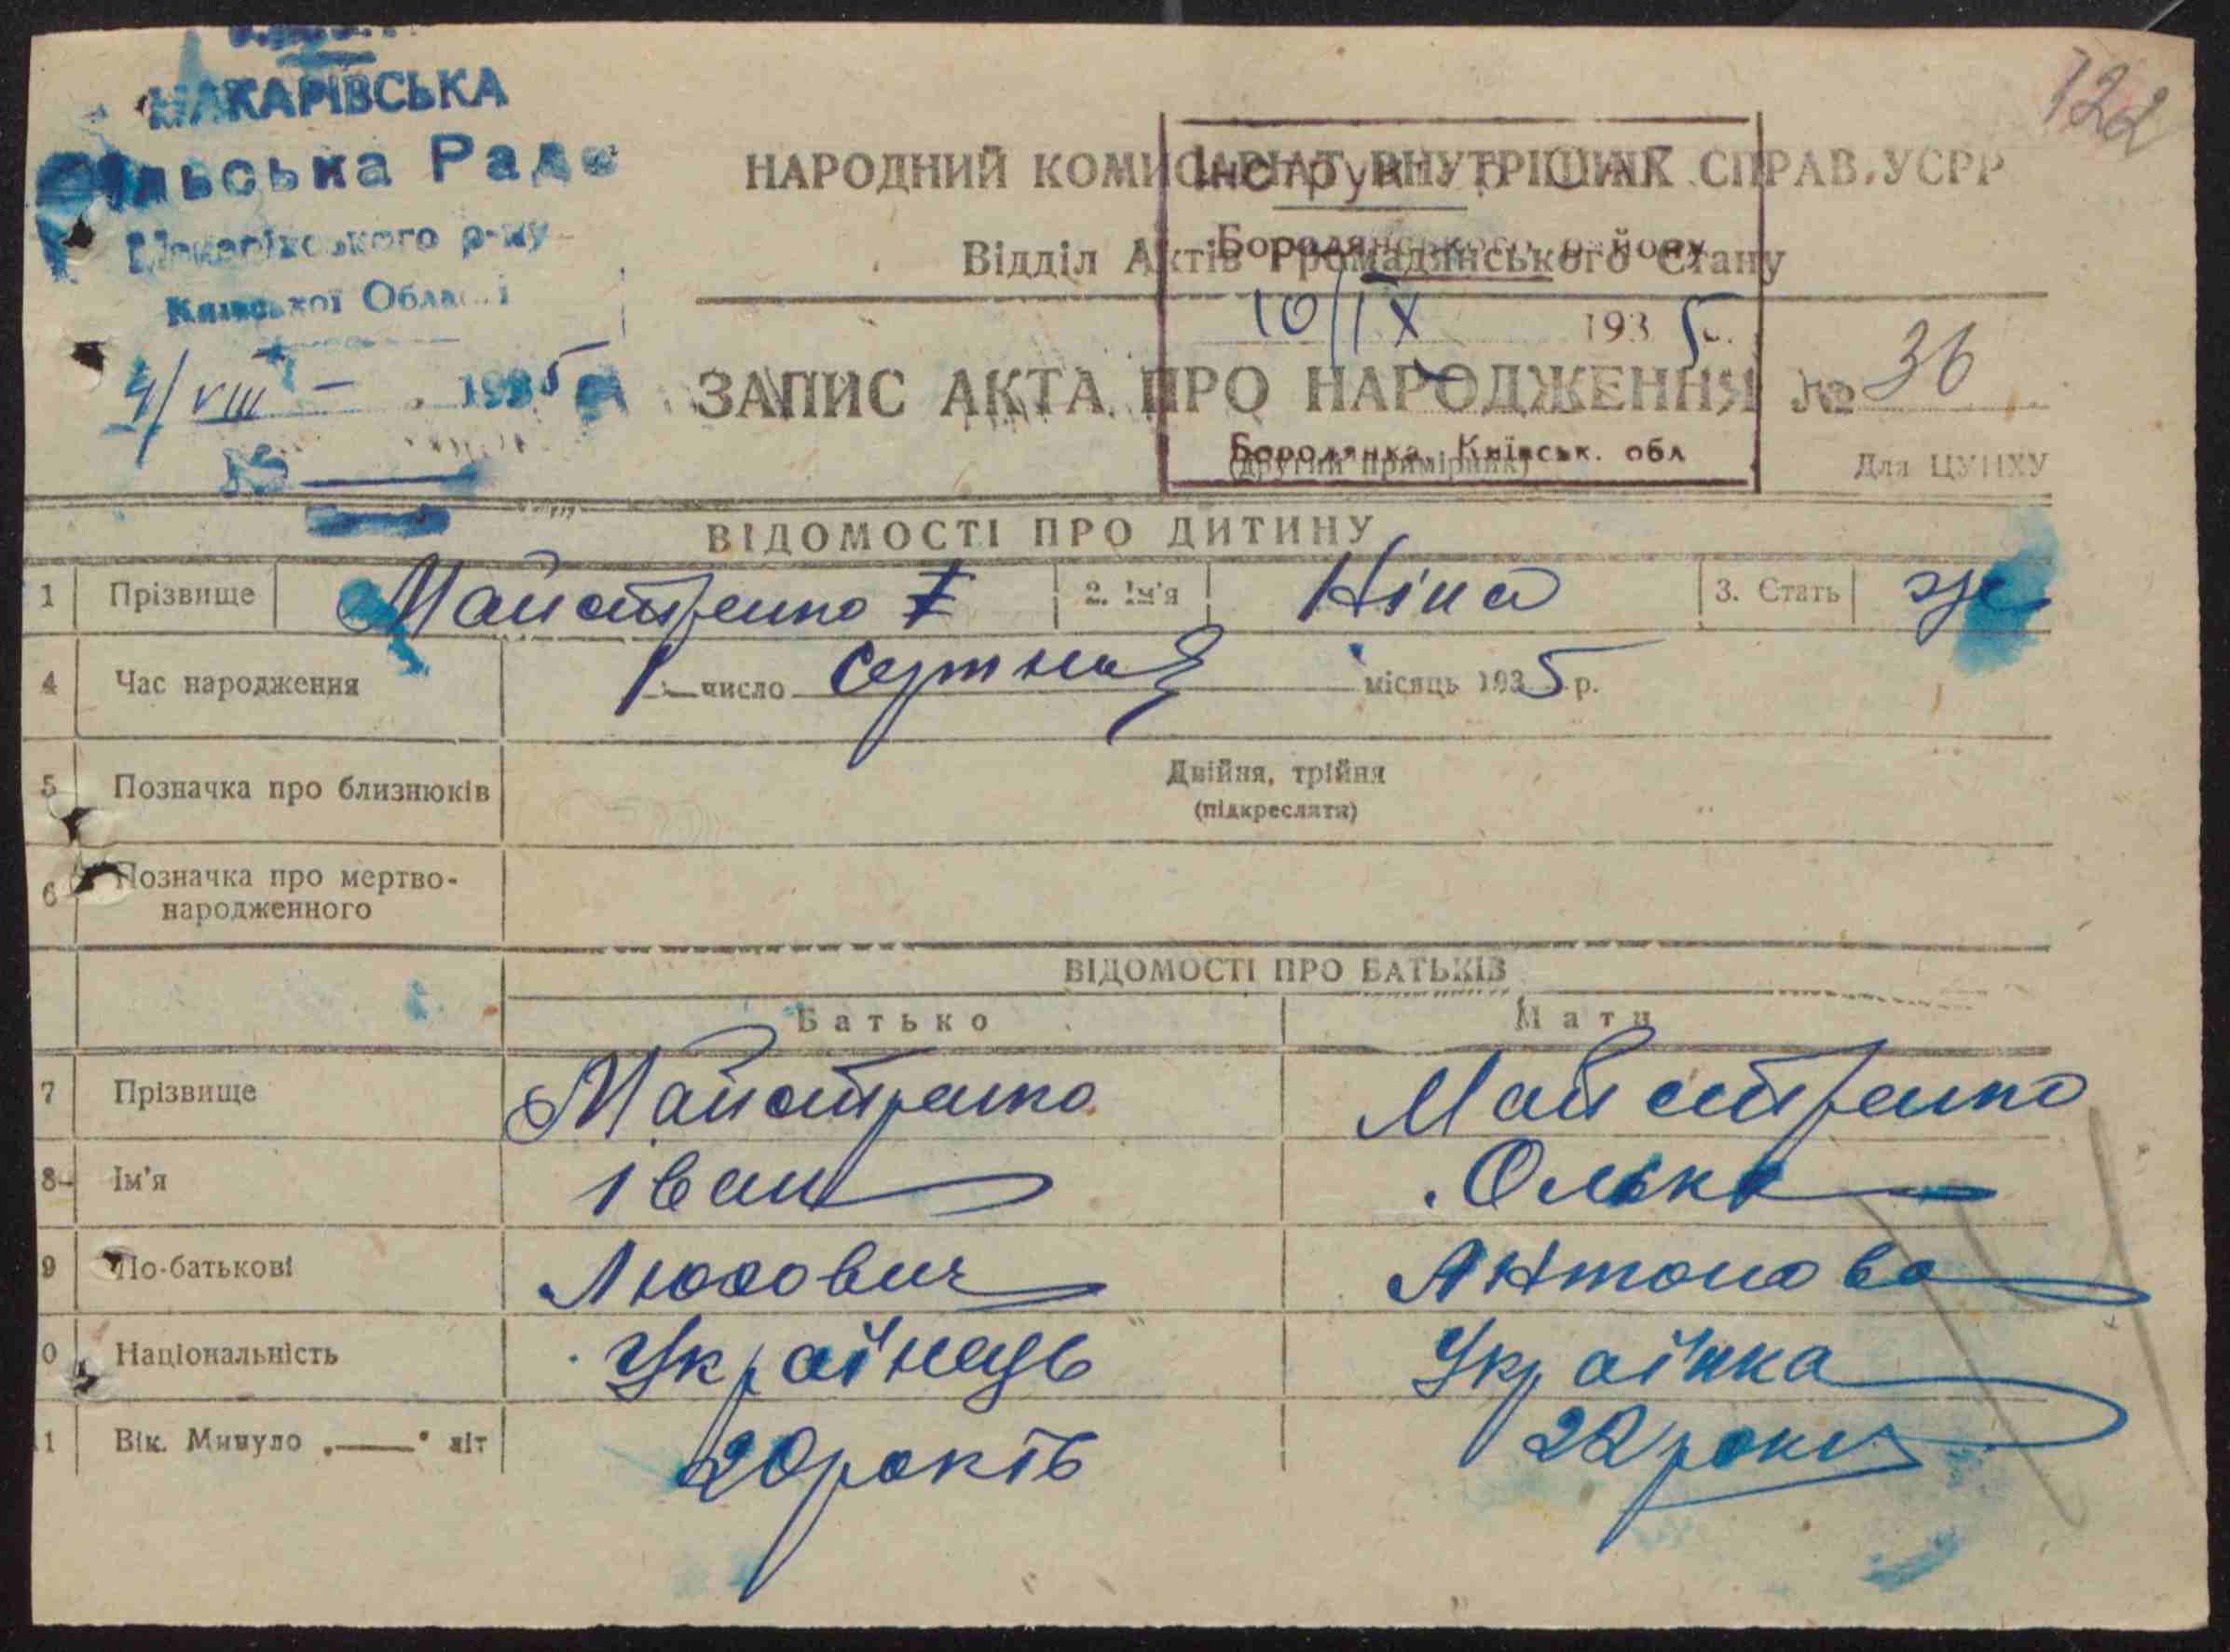 122
МАКАРІВСЬКА
Сільська Рада
Макарівського р-ну
Київської Області
4/VIII 1935
№
НАРОДНИЙ КОМИСАРІАТ ВНУТРІШНІХ СПРАВ УСРР
Відділ Актів Громадянського Стану
Бородянського району
10/IX 1935
ЗАПИС АКТА ПРО НАРОДЖЕННЯ № 36
Бородянка, Київськ. обл
(другий примірник)
Для ЦУНХУ
ВІДОМОСТІ ПРО ДИТИНУ
1 Прізвище Майстренко 2. Ім'я Ніна 3. Стать ж
4 Час народження 1 число серпня місяць 1935 р.
5 Позначка про близнюків Двійня, трійня
(підкреслити)
6 Позначка про мертво-
народженного
ВІДОМОСТІ ПРО БАТЬКІВ
Батько Мати
7 Прізвище Майстренко Майстренко
8 Ім'я Іван Олька
9 По-батькові Антонова
0 Національність Українець Українка
1 Вік. Минуло „—“ літ 20 років 22 роки